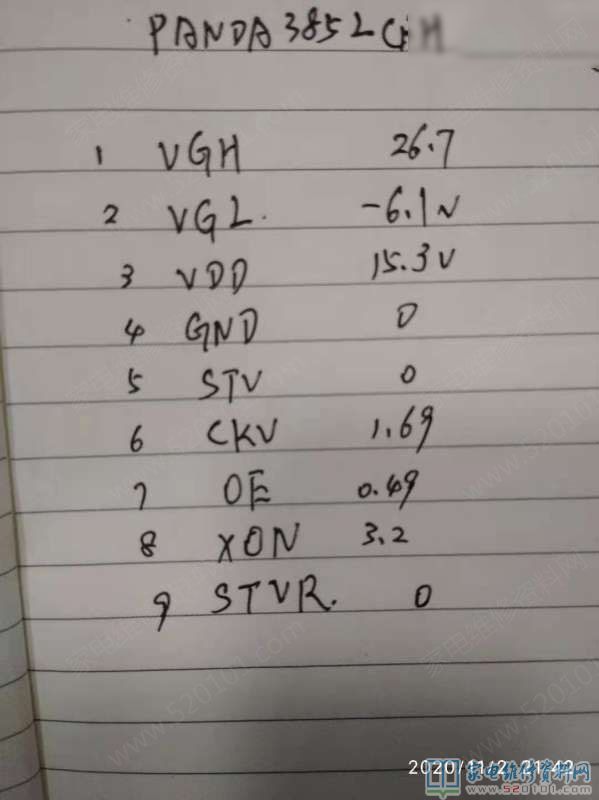 PANDA 385L
1 VGH 26.7
2 VGL. -6.1V
3 VDD 15.3V
4 GND 0
5 STV 0
6 CKV 1.69
7 OE 0.49
8 XON 3.2
9 STVR. 0
2020/11/2 21:42
家电维修资料网
www.520101.com